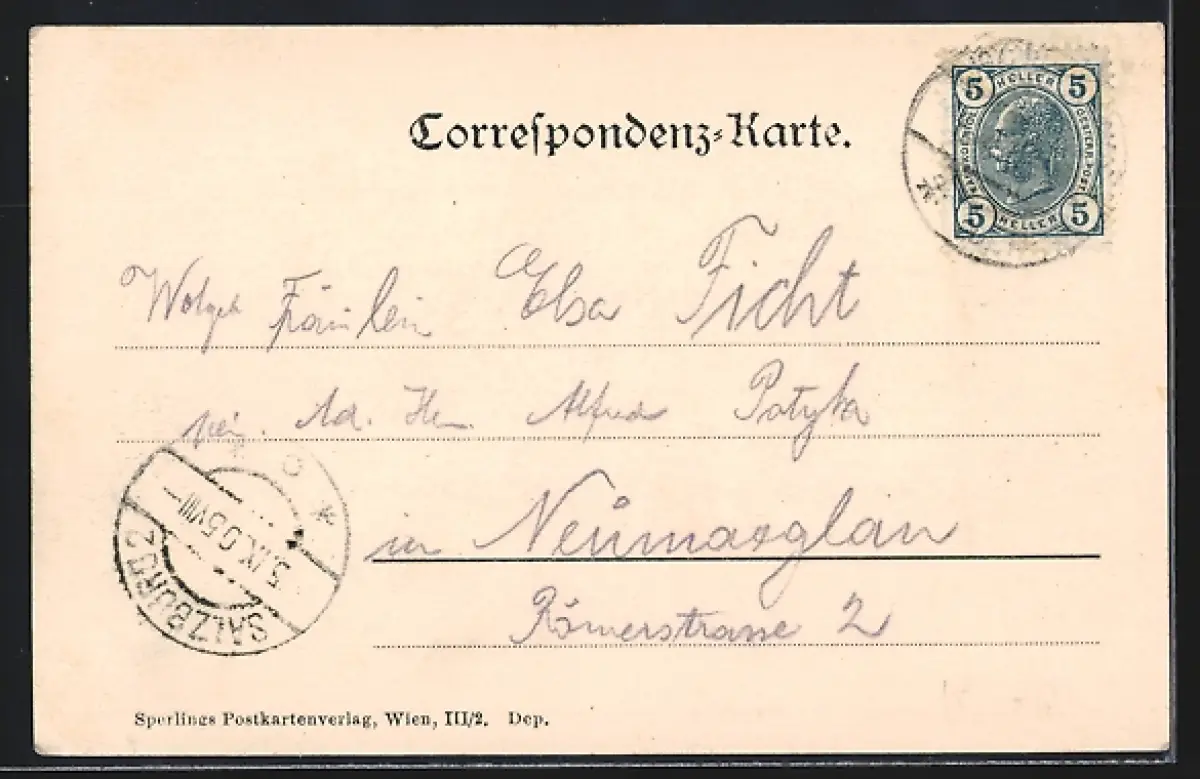 Correſpondenz-Karte.
5 HELLER 5
OESTERR. POST
5 HELLER 5
Wolgeb Fräulein Elsa Ficht
Ad. Herrn Alfred Potyka
in Neumaxglan
Römerstrasse 2
SALZBURG 2
5 IX 05 VIII
Sperlings Postkartenverlag, Wien, III/2. Dep.